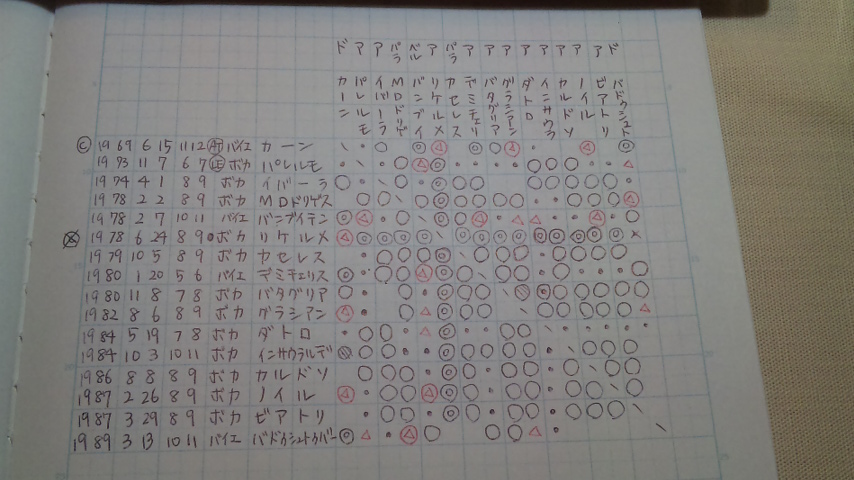 ド ア ア パラ ベル ア パラ ア ア ア ア ア ア ノ ア ド
カーン パレルモ イバーラ MDドリゲス バンブイテン リケルメ カセレス デミチェリス バタグリア グラシアン ダトロ インサウラルデ カルドソ ノイル ビアトリ バドシュトゥバー
C 1969 6 15 11 12 AT バイエ カーン
1973 11 7 6 7 LE ボカ パレルモ
1974 4 1 8 9 ボカ イバーラ
1978 2 2 8 9 ボカ MDドリゲス
1978 2 7 10 11 バイエ バンブイテン
1978 6 24 8 9 ボカ リケルメ
1979 10 5 8 9 ボカ カセレス
1980 1 20 5 6 バイエ デミチェリス
1980 11 8 7 8 ボカ バタグリア
1982 8 6 8 9 ボカ グラシアン
1984 5 19 7 8 ボカ ダトロ
1984 10 3 10 11 ボカ インサウラルデ
1986 8 8 8 9 ボカ カルドソ
1987 2 26 8 9 ボカ ノイル
1987 3 29 8 9 ボカ ビアトリ
1989 3 13 10 11 バイエ バドゥシュトゥバー